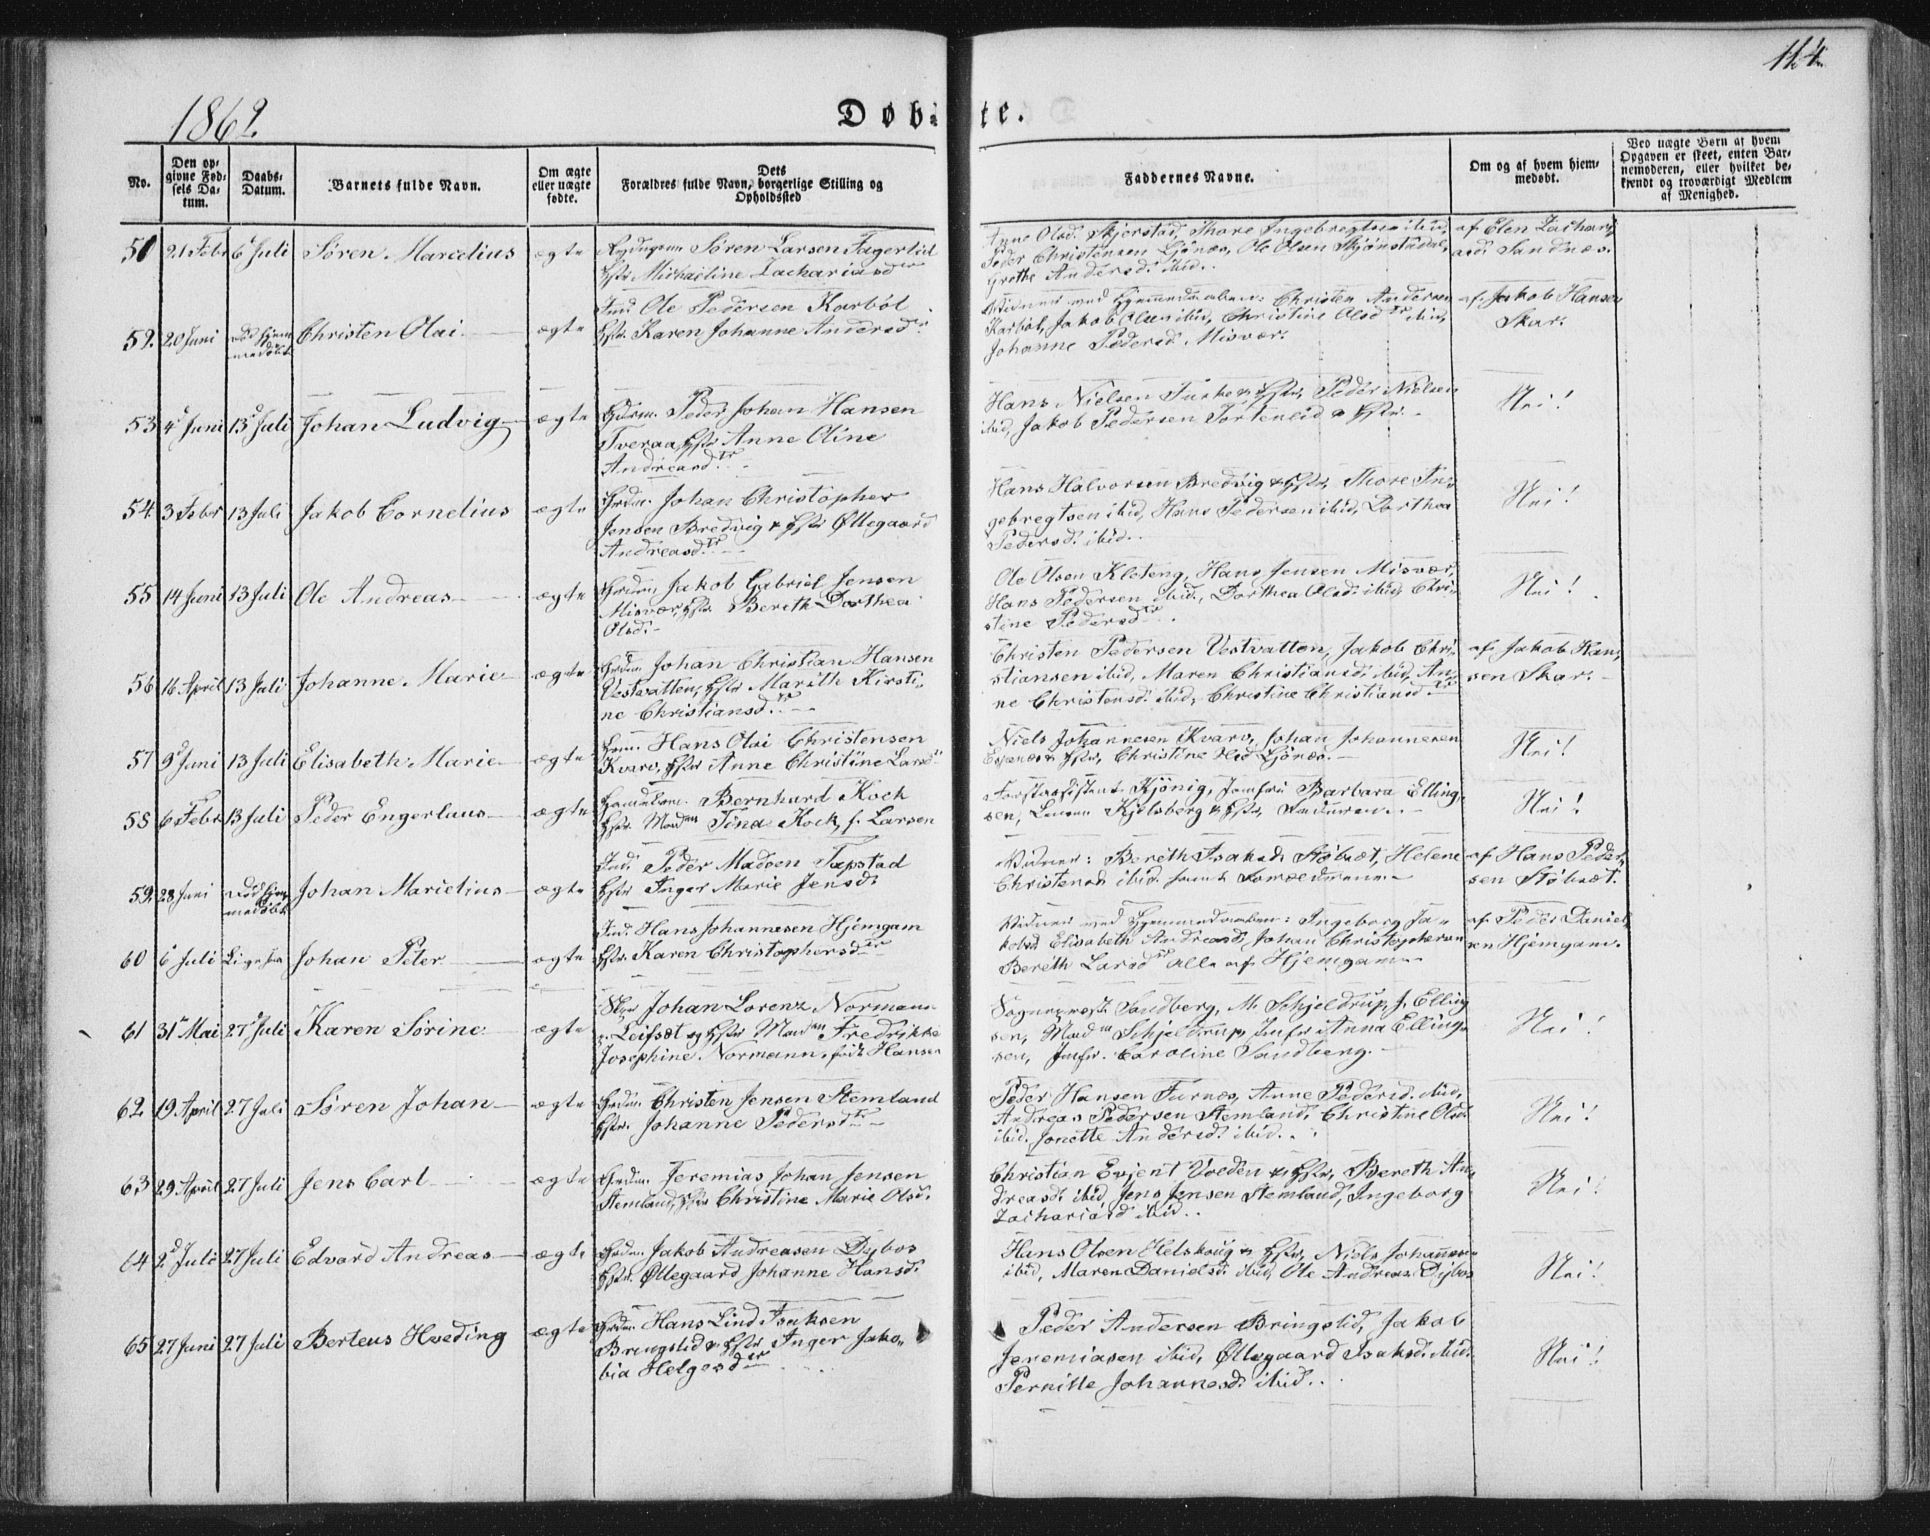 114
1862.
Døbte.
No.
Den opgivne Fødsels Datum.
Daabs-Datum.
Barnets fulde Navn.
Om ægte eller uægte fødte.
Dets Forældres fulde Navn, borgerlige Stilling og Opholdssted
Faddernes Navne.
Om og af hvem hjemmedøbt.
Ved uægte Børn af hvem Opgaven er skeet, enten Barnemoderen, eller hvilket bekjendt og troværdigt Medlem af Menighed.
51 21 Febr 6 Juli Søren Marcelius ægte
Søren Larsen Fagerlid
Hstr. Michaeline Zachariasdtr
Anne Olsd. Skjerstad, Thore Ingebregtsen ibid,
Peder Christensen Ljønæs, Ole Olsen Skjønstudal,
Grethe Andersd. ibid.
af Elen Zachari
asd. Sandnæs.
52. 20 Juni Død hjem
medøbt Christen Olai ægte
Ind. Ole Pedersen Karbøl
Hstr. Karen Johanne Andersd.
Vidner med Hjemmedaaben: Christen Andersen
Karbøl, Jakob Olsen ibid, Christine Olsdtr ibid,
Johanne Pedersd. Misvær.
af Jakob Hansen
Skar.
53 4 Juni 13 Juli Johan Ludvig ægte
Grdm. Peder Johan Hansen
Tveraa, Hstr Anne Oline
Andreasdtr
Hans Nielsen Turke & Hstr, Peder Nielsen
ibid, Jakob Pedersen Tortenlid & Hstr.
Nei!
54. 3 Febr 13 Juli Jakob Cornelius ægte
Grdm. Johan Christopher
Jensen Bredvig & Hstr Øllegaard
Andreasdtr
Hans Halvorsen Bredvig & Hstr, Thore In-
gebregtsen ibid, Hans Pedersen ibid, Dorthea
Pedersd. ibid.
Nei!
55 14 Juni 13 Juli Ole Andreas ægte
Grdm. Jakob Gabriel Jensen
Misvær, Hstr. Bereth Dorthea
Olsd.
Ole Olsen Kloteng, Hans Jensen Misvær,
Hans Pedersen ibid., Dorthea Olsd. ibid, Chri-
stine Pedersdtr
Nei!
56 16 April 13 Juli Johanne Marie ægte
Grdm. Johan Christian Hansen
Vestvatten, Hstr Marith Kirsti-
ne Christiansdtr
Christen Pedersen Vestvatten, Jakob Chri-
stiansen ibid, Maren Christiansd. ibid, An-
ne Christensd. ibid, Christine Christiansdtr
af Jakob Han-
sen Skar.
57 9 Juni 13 Juli Elisabeth Marie ægte
Hans Olai Christensen
Kvarv, Hstr Anne Christine Larsd
Niels Johannesen Kvarv, Johan Johannesen
Evjenes & Hstr, Christine Hed Ljønes.
Nei!
58 6 Febr 13 Juli Peder Engerluus ægte
Bernhard Kock
Hstr. Madm Tina Kock, f. Larsen
Forstassistent Kjønig, Jomfru Barbara Elling-
sen, Kjelsberg & Hstr,
Nei!
59. 28 Juni Død hjem
medøbt Johan Marielius ægte
Ind. Peder Madsen Tapstad
Hstr Inger Marie Jensd.
Vidner: Bereth Isaksd. Støbæt, Helene
Christensd. ibid. samt Forældrene.
af Hans Peder-
sen Støbæt.
60 6 Juli Johan Peter ægte
Ind. Hans Johannesen Hjemgam
Hstr. Karen Christophersdtr
Vidner med Hjemmedaaben: Ingeborg Ja-
kobsd Elisabeth Andreasd, Johan Christophersen
Bereth Larsdtr alle af Hjemgam.
af Peder Daniel-
sen Hjemgam.
61 31 Mai 27 Juli Karen Sørine ægte
Johan Lorenz Normann
Leifsæt og Hstr Madm Fredrikke
Josephine Normann, født Hansen
Sogneprest Sandberg, M. Schjeldrup, J. Elling
sen, Madm Schjeldrup, Jmfr Anna Elling-
sen, Jmfr. Caroline Sandberg.
Nei!
62. 19 April 27 Juli Søren Johan ægte
Grdm. Christen Jensen Stemland
Hstr. Johanne Pedersdtr
Peder Hansen Furnæs, Anne Pedersd. ibid,
Andreas Pedersen Stemland, Christine Olsd.
ibid. Jonette Andersd. ibid.
Nei!
63 29 April 27 Juli Jens Carl ægte
Grdm. Jeremias Johan Jensen
Stemland, Hstr Christine Marie Olsd.
Christian Evjent Voeden & Hstr, Bereth An-
dreasd. ibid, Jens Jensen Stemland, Ingeborg
Zachariasd ibid.
Nei!
64 2 Juli 27 Juli Edvard Andreas ægte
Grdm. Jakob Andreasen Dybos
Hstr. Øllegaard Johanne Hansd.
Hans Olsen Helskoug & Hstr, Niels Johannesen
ibid, Maren Danielsd. ibid, Ole Andreas. Dybos
Nei!
65 27 Juni 27 Juli Berteus Hveding ægte
Grdm. Hans Lind Isaksen
Bringslid & Hstr Inger Jako-
bia Helgesdtr
Peder Andersen Bringslid, Jakob
Jeremiasen ibid, Øllegaard Isaksd. ibid.
Pernille Johannesd. ibid.
Nei!